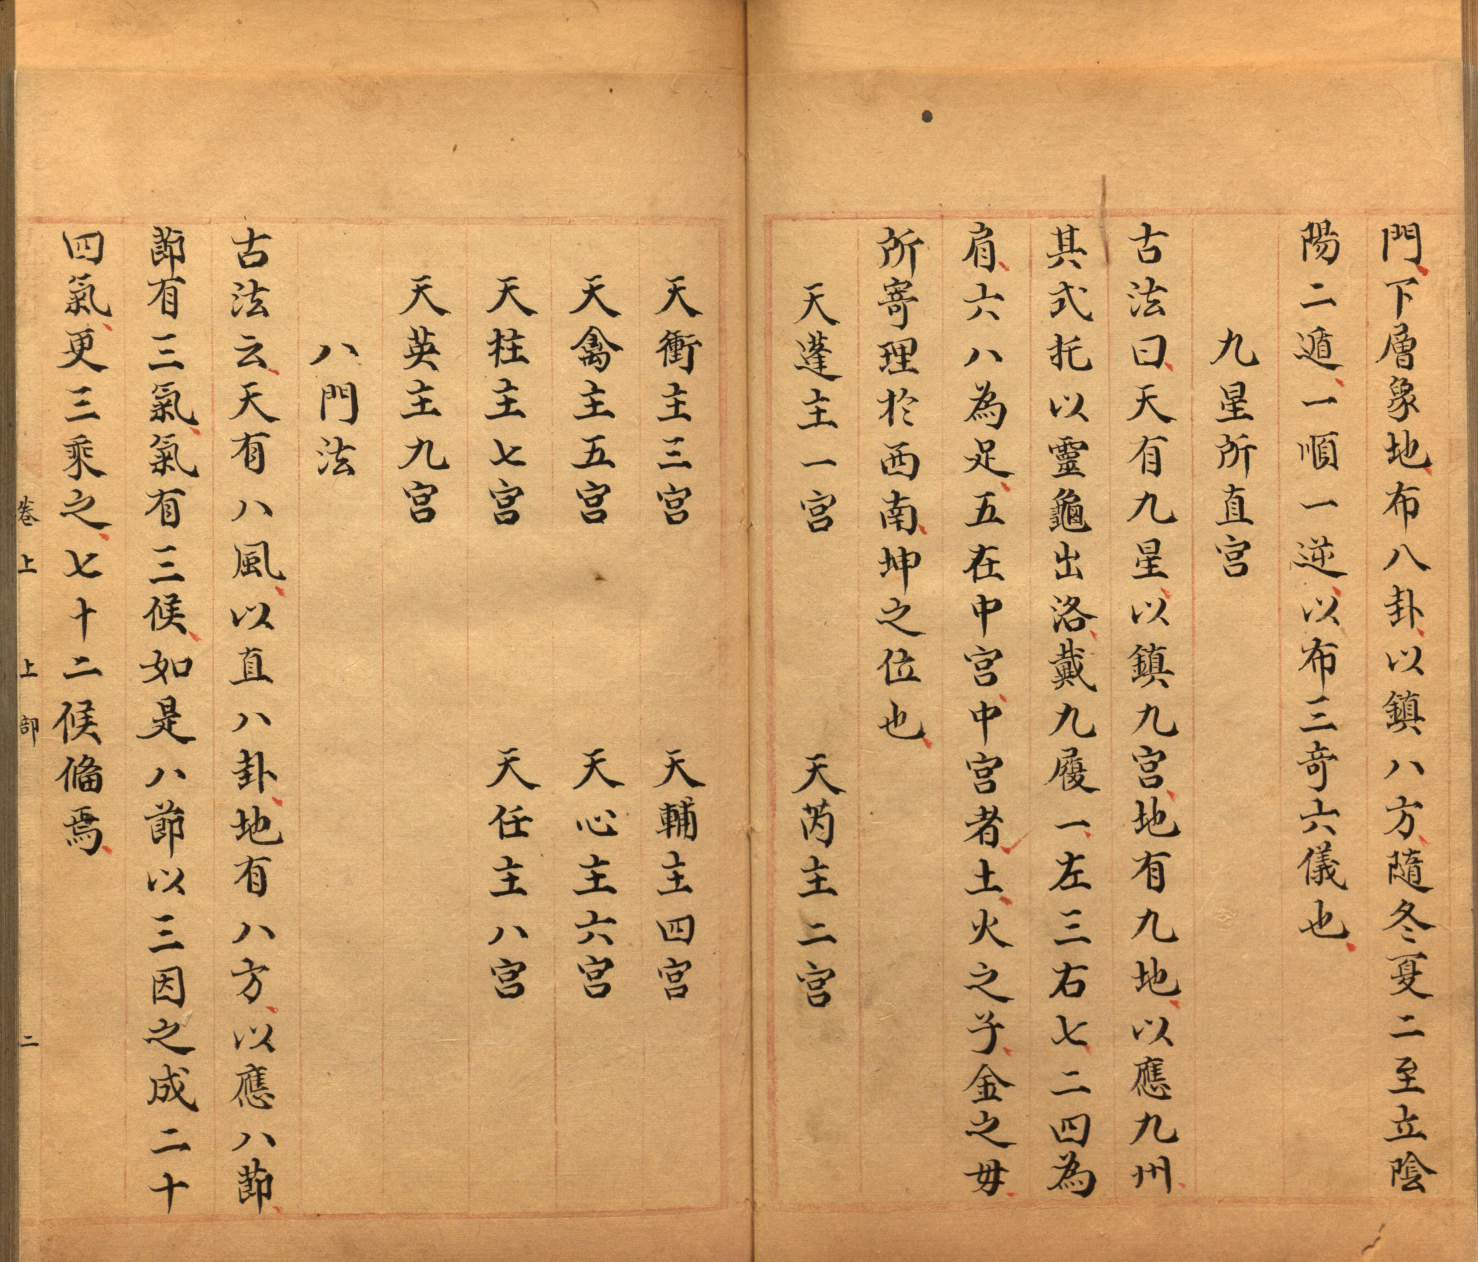 門下層象地布八卦以鎮八方隨冬夏二至立陰
陽二遁一順一逆以布三竒六儀也
九星所直宮
古法曰天有九星以鎮九宮地有九地以應九州
其式托以靈龜出洛戴九履一左三右七二四為
肩六八為足五在中宮中宮者土火之子金之毋
所寄理於西南坤之位也
天蓬主一宮　天芮主二宮
天衝主三宮　天輔主四宮
天禽主五宮　天心主六宮
天柱主七宮　天任主八宮
天英主九宮
八門法
古法云天有八風以直八卦地有八方以應八節
節有三氣氣有三候如是八節以三因之成二十
四氣更三乘之七十二候俻焉
卷上　上部　二